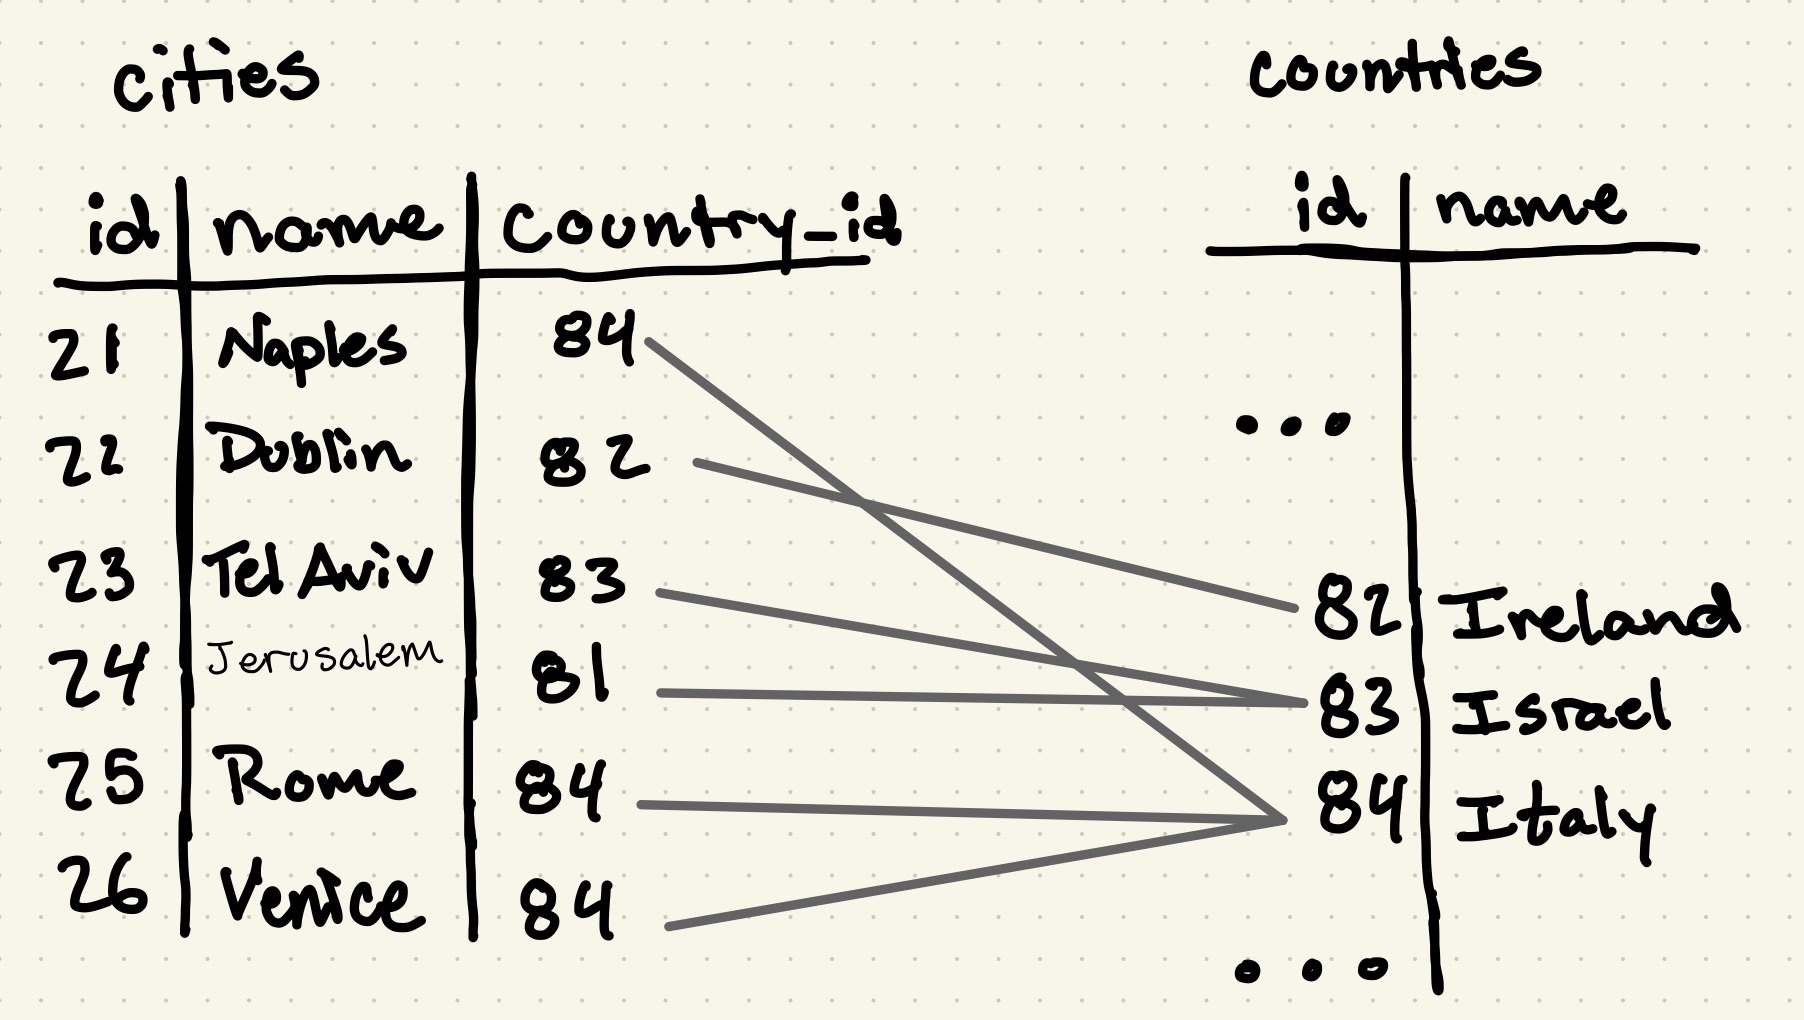 cities
id name country_id
21 Naples 84
22 Dublin 82
23 Tel Aviv 83
24 Jerusalem 81
25 Rome 84
26 Venice 84
countries
id name
...
82 Ireland
83 Israel
84 Italy
...